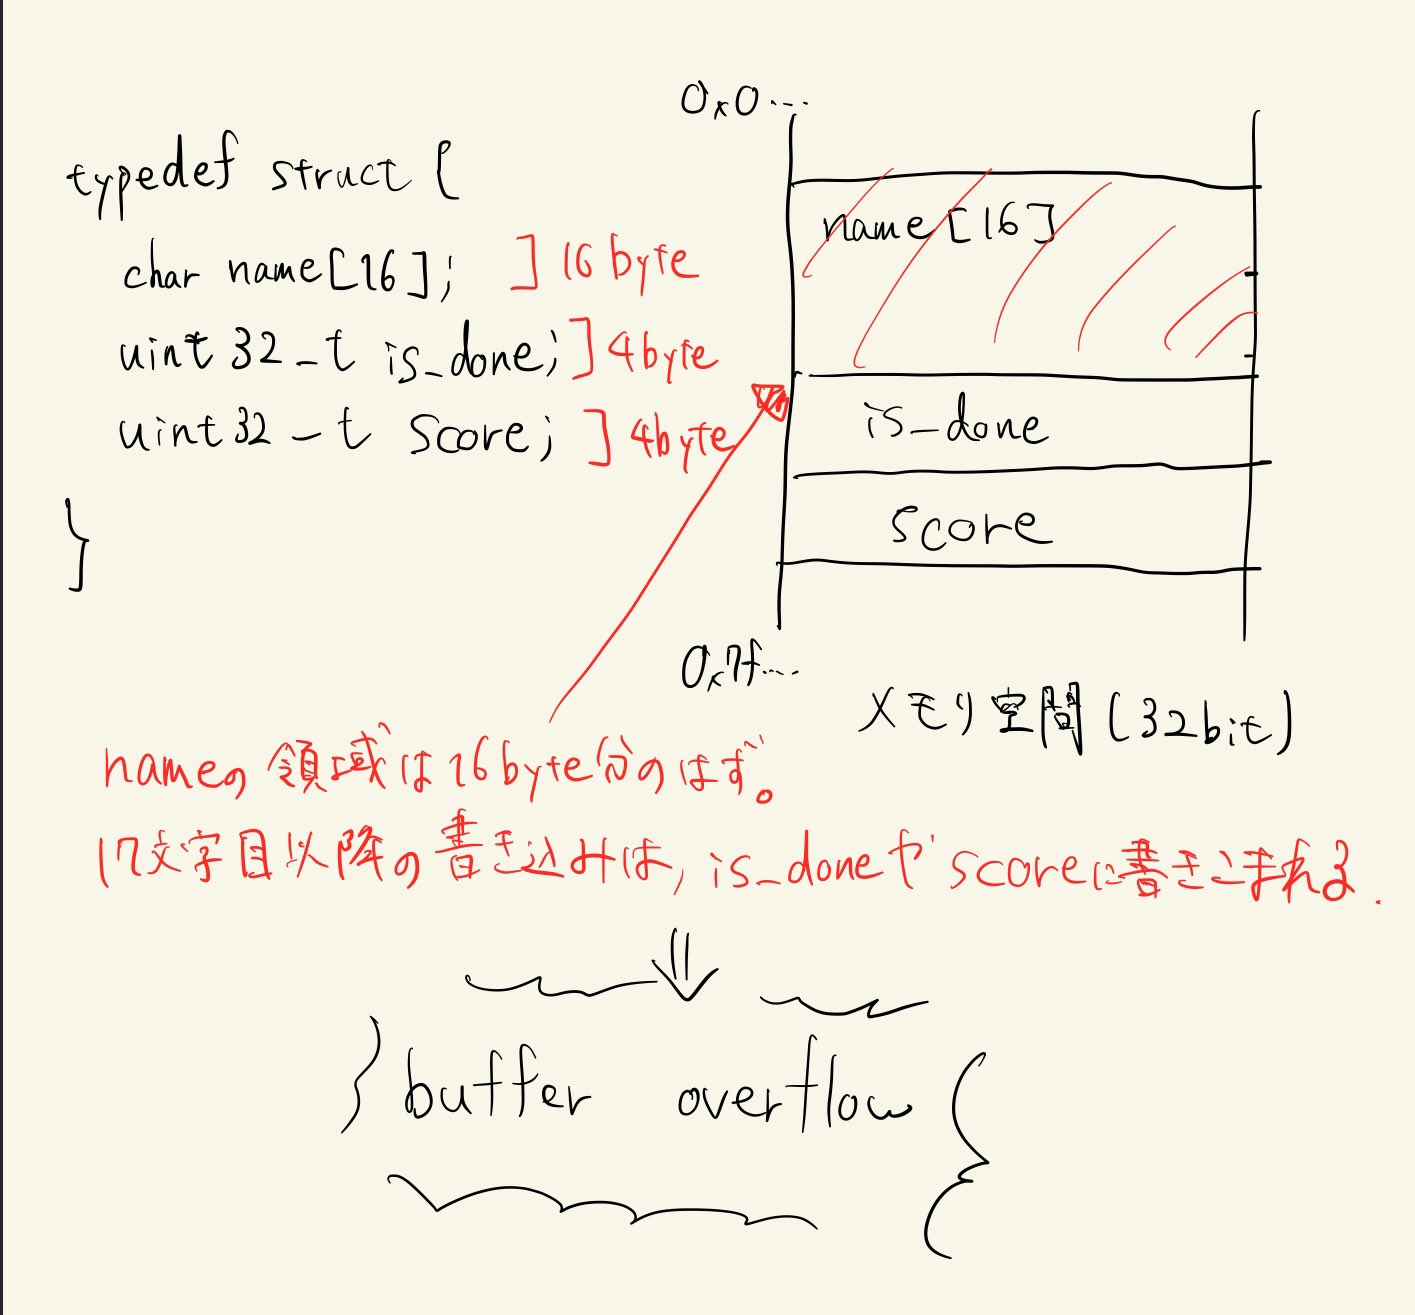 typedef struct {
char name[16]; ]16byte
uint32_t is_done; ]4byte
uint32_t score; ]4byte
}
0x0...
name[16]
is_done
score
0x7f...
メモリ空間(32bit)
nameの領域は16byte分のはず。
17文字目以降の書き込みは, is_doneやscoreに書きこまれる.
⇓
buffer overflow